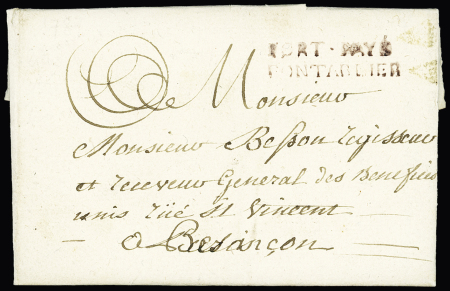 PORT-PAYÉ
PONTARLIER
A Monsieur
Monsieur Besson regisseur
et receveur General des Benefices
unis rüe St Vincent
a Besançon